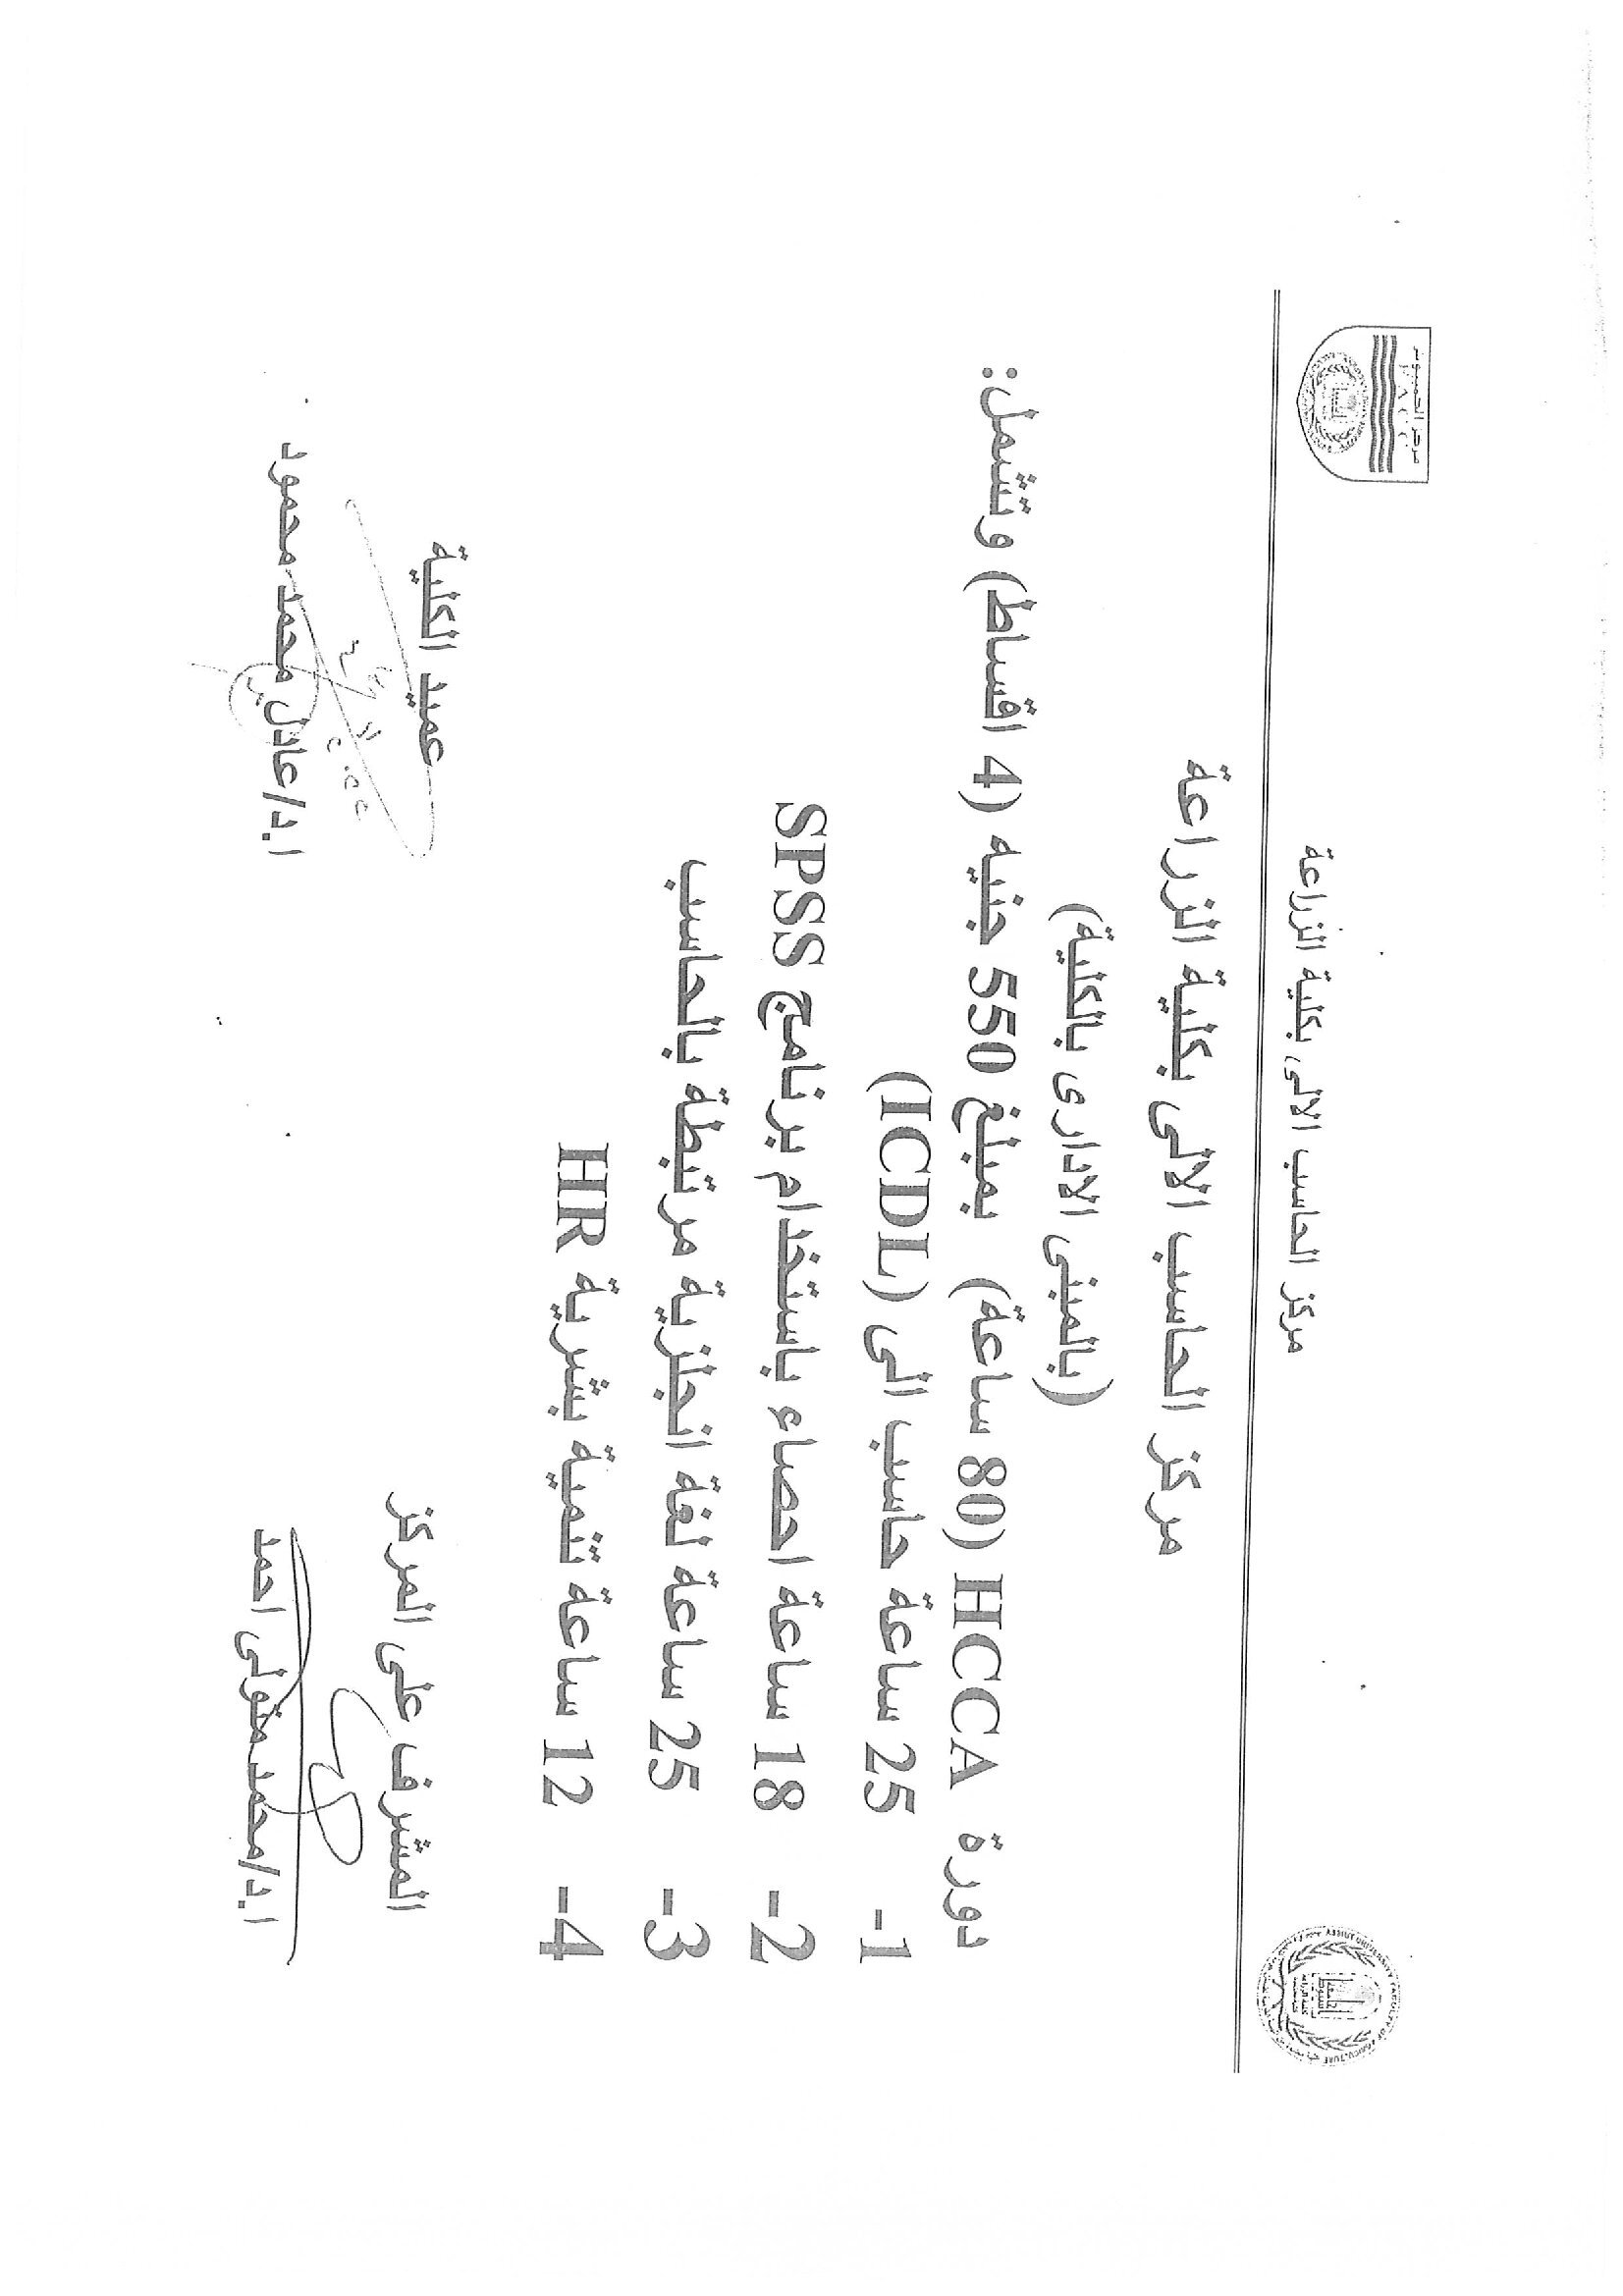 مركز الحاسب الالى بكلية الزراعة
مركز الحاسب الالى بكلية الزراعة
(بالمبنى الادارى بالكلية)
دورة HCCA (80 ساعة) بمبلغ 550 جنيه (4 اقساط) وتشمل:
1- 25 ساعة حاسب الى (ICDL)
2- 18 ساعة احصاء باستخدام برنامج SPSS
3- 25 ساعة لغة انجلزية مرتبطة بالحاسب
4- 12 ساعة تنمية بشرية HR
المشرف على المركز
عميد الكلية
ا.د/محمد متولى احمد
ا.د/عادل محمد محمود